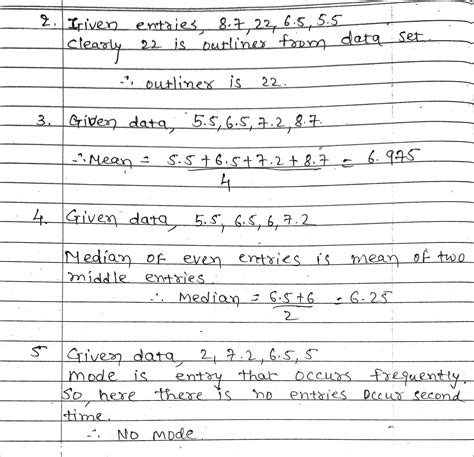 2. Given entries, 8.7, 22, 6.5, 5.5
clearly 22 is outliner from data set.
∴ outliner is 22.
3. Given data, 5.5, 6.5, 7.2, 8.7
∴ Mean = 5.5 + 6.5 + 7.2 + 8.7 = 6.975
4
4. Given data, 5.5, 6.5, 6, 7.2
Median of even entries is mean of two
middle entries.
∴ Median = 6.5 + 6 = 6.25
2
5 Given data, 2, 7.2, 6.5, 5
mode is entry that occurs frequently.
So, here there is no entries occur second
time.
∴ No mode.